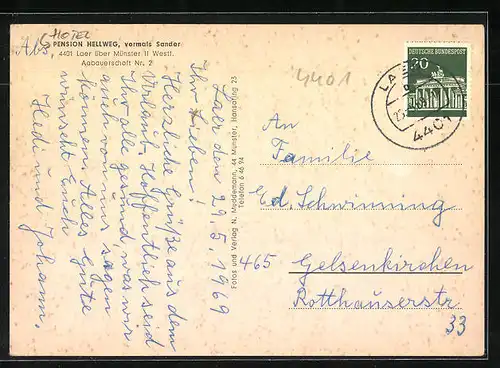 Abs. HOTEL
PENSION HELLWEG, vormals Sander
4401 Laer über Münster II Westf.
Aabauerschaft Nr. 2
Laer den 29.5.1969
Ihr Lieben!
Herzliche Grüße aus dem
Urlaub. Hoffentlich seid
Ihr alle gesund, was wir
auch von uns sagen
können. Alles Gute
wünscht Euch
Hedi und Johann.
Fotos und Verlag N. Maddemann, 44 Münster, Hansaring 23
Telefon 6 46 94
4401
20
DEUTSCHE BUNDESPOST
LAER
4401
An
Familie
Ed. Schwinning
465 Gelsenkirchen
Rotthauserstr
33